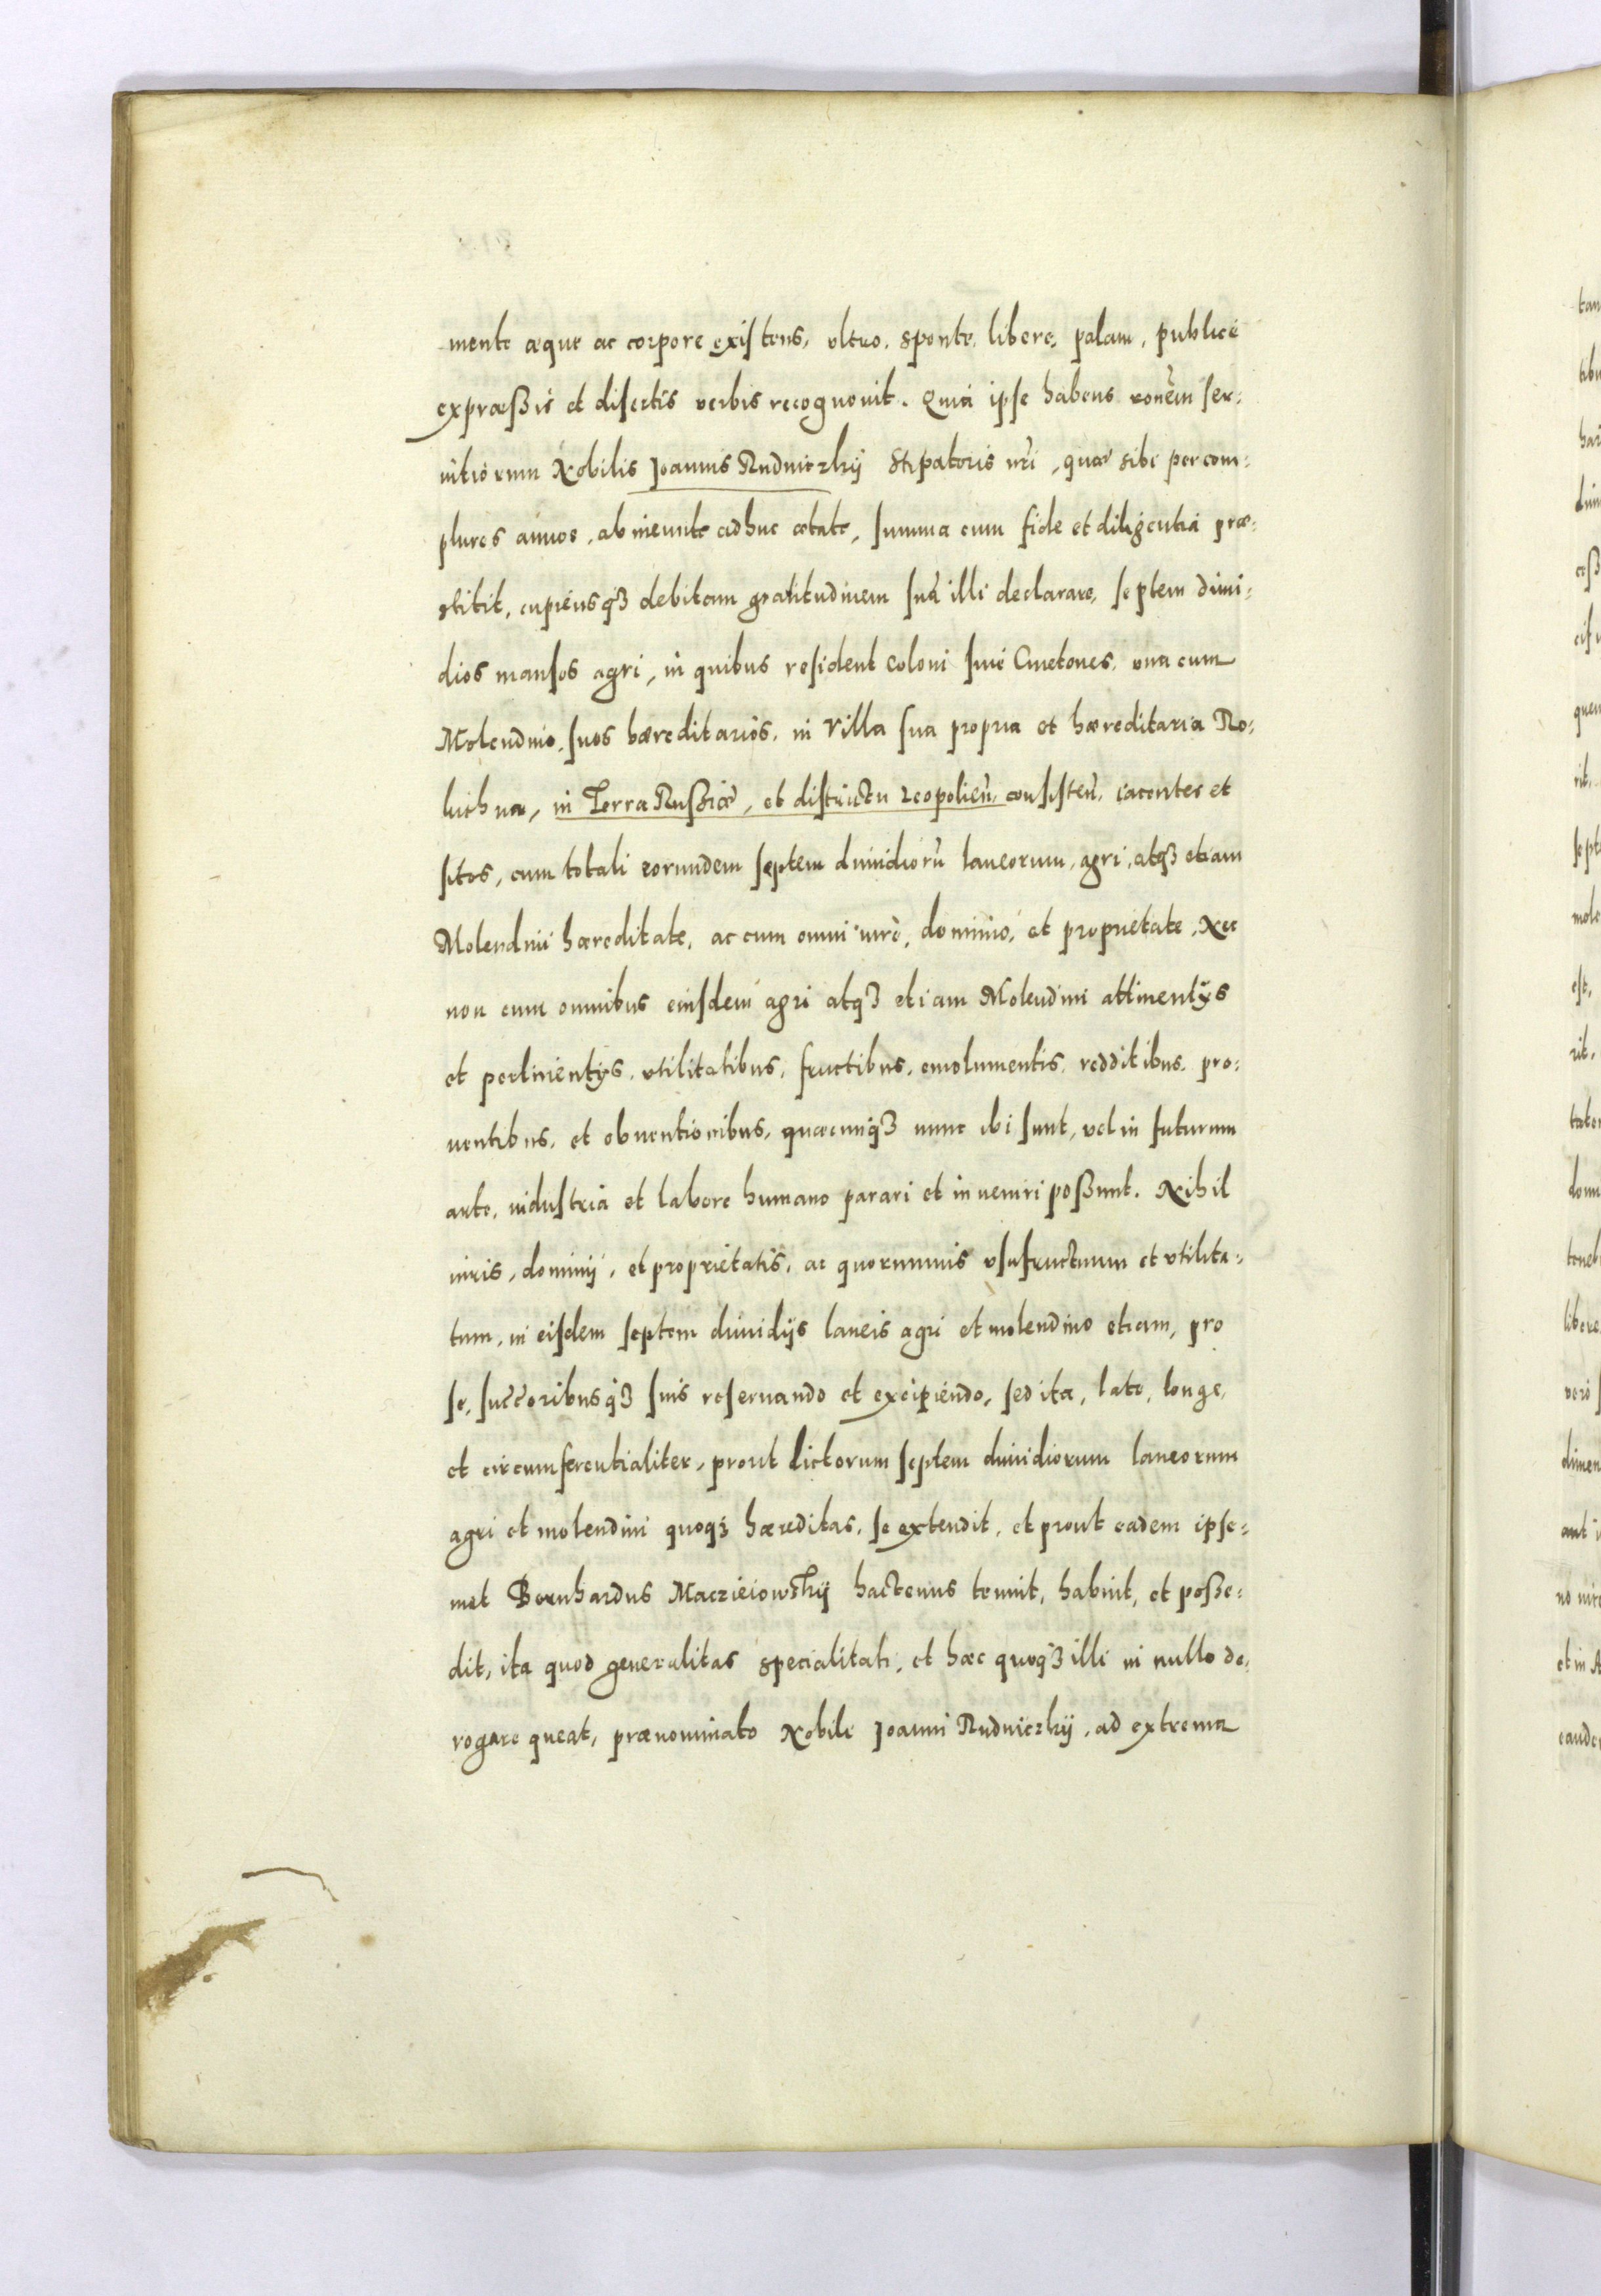 mente æque ac corpore existens, vltro, sponte, libere, palam, publicè
expræßis et disertis verbis recognouit. Quia ipse habens ronem̃ ser:
uitiorum Nobilis Joannis Rudniczkij Stipatoris nr̃i, quæ sibi per com:
plures annos, ab ineunte adhuc ætate, summa cum fide et diligentia præ:
stitit, cupiensq́ꝫ debitam gratitudinem suã illi declarare, septem dimi:
dios mansos agri, in quibus resident coloni siue Cmetones, vna cum
Molendino, suos hæreditarios, in Villa sua propria et hæreditaria Ro:
luchna, in Terra Rußiæ, et districtu Leopolieñ, consisteñ, iacentes et
sitos, cum totali eorundem septem dimidiorũ laneorum, agri, atqꝫ etiam
Molendini hæreditate, ac cum omni iure, dominio, et proprietate, Nec
non cum omnibus eiusdem agri atqꝫ etiam Molendini attinentijs
et pertinentijs, vtilitatibus, fructibus, emolumentis, redditibus, pro:
uentibus, et obuentionibus, quæcunqꝫ nunc ibi sunt, vel in futurum
arte, industria et labore humano parari et inueniri poßunt. Nihil
iuris, dominij, et proprietatis, ac quorumuis vsufructuum et vtilita:
tum, in eisdem septem dimidijs laneis agri et molendino etiam, pro
se, succ̃oribusq́ꝫ suis reseruando et excipiendo, sed ita, late, longe,
et circumferentialiter, prout dictorum septem dimidiorum laneorum
agri et molendini quoqꝫ hæreditas, se extendit, et prout eadem ipse:
met Bernhardus Maczieiowskij hactenus tenuit, habuit, et poße:
dit, ita quod generalitas specialitati, et hæc quoqꝫ illi in nullo de:
rogare queat, prænominato Nobili Joanni Rudniczkij, ad extrema